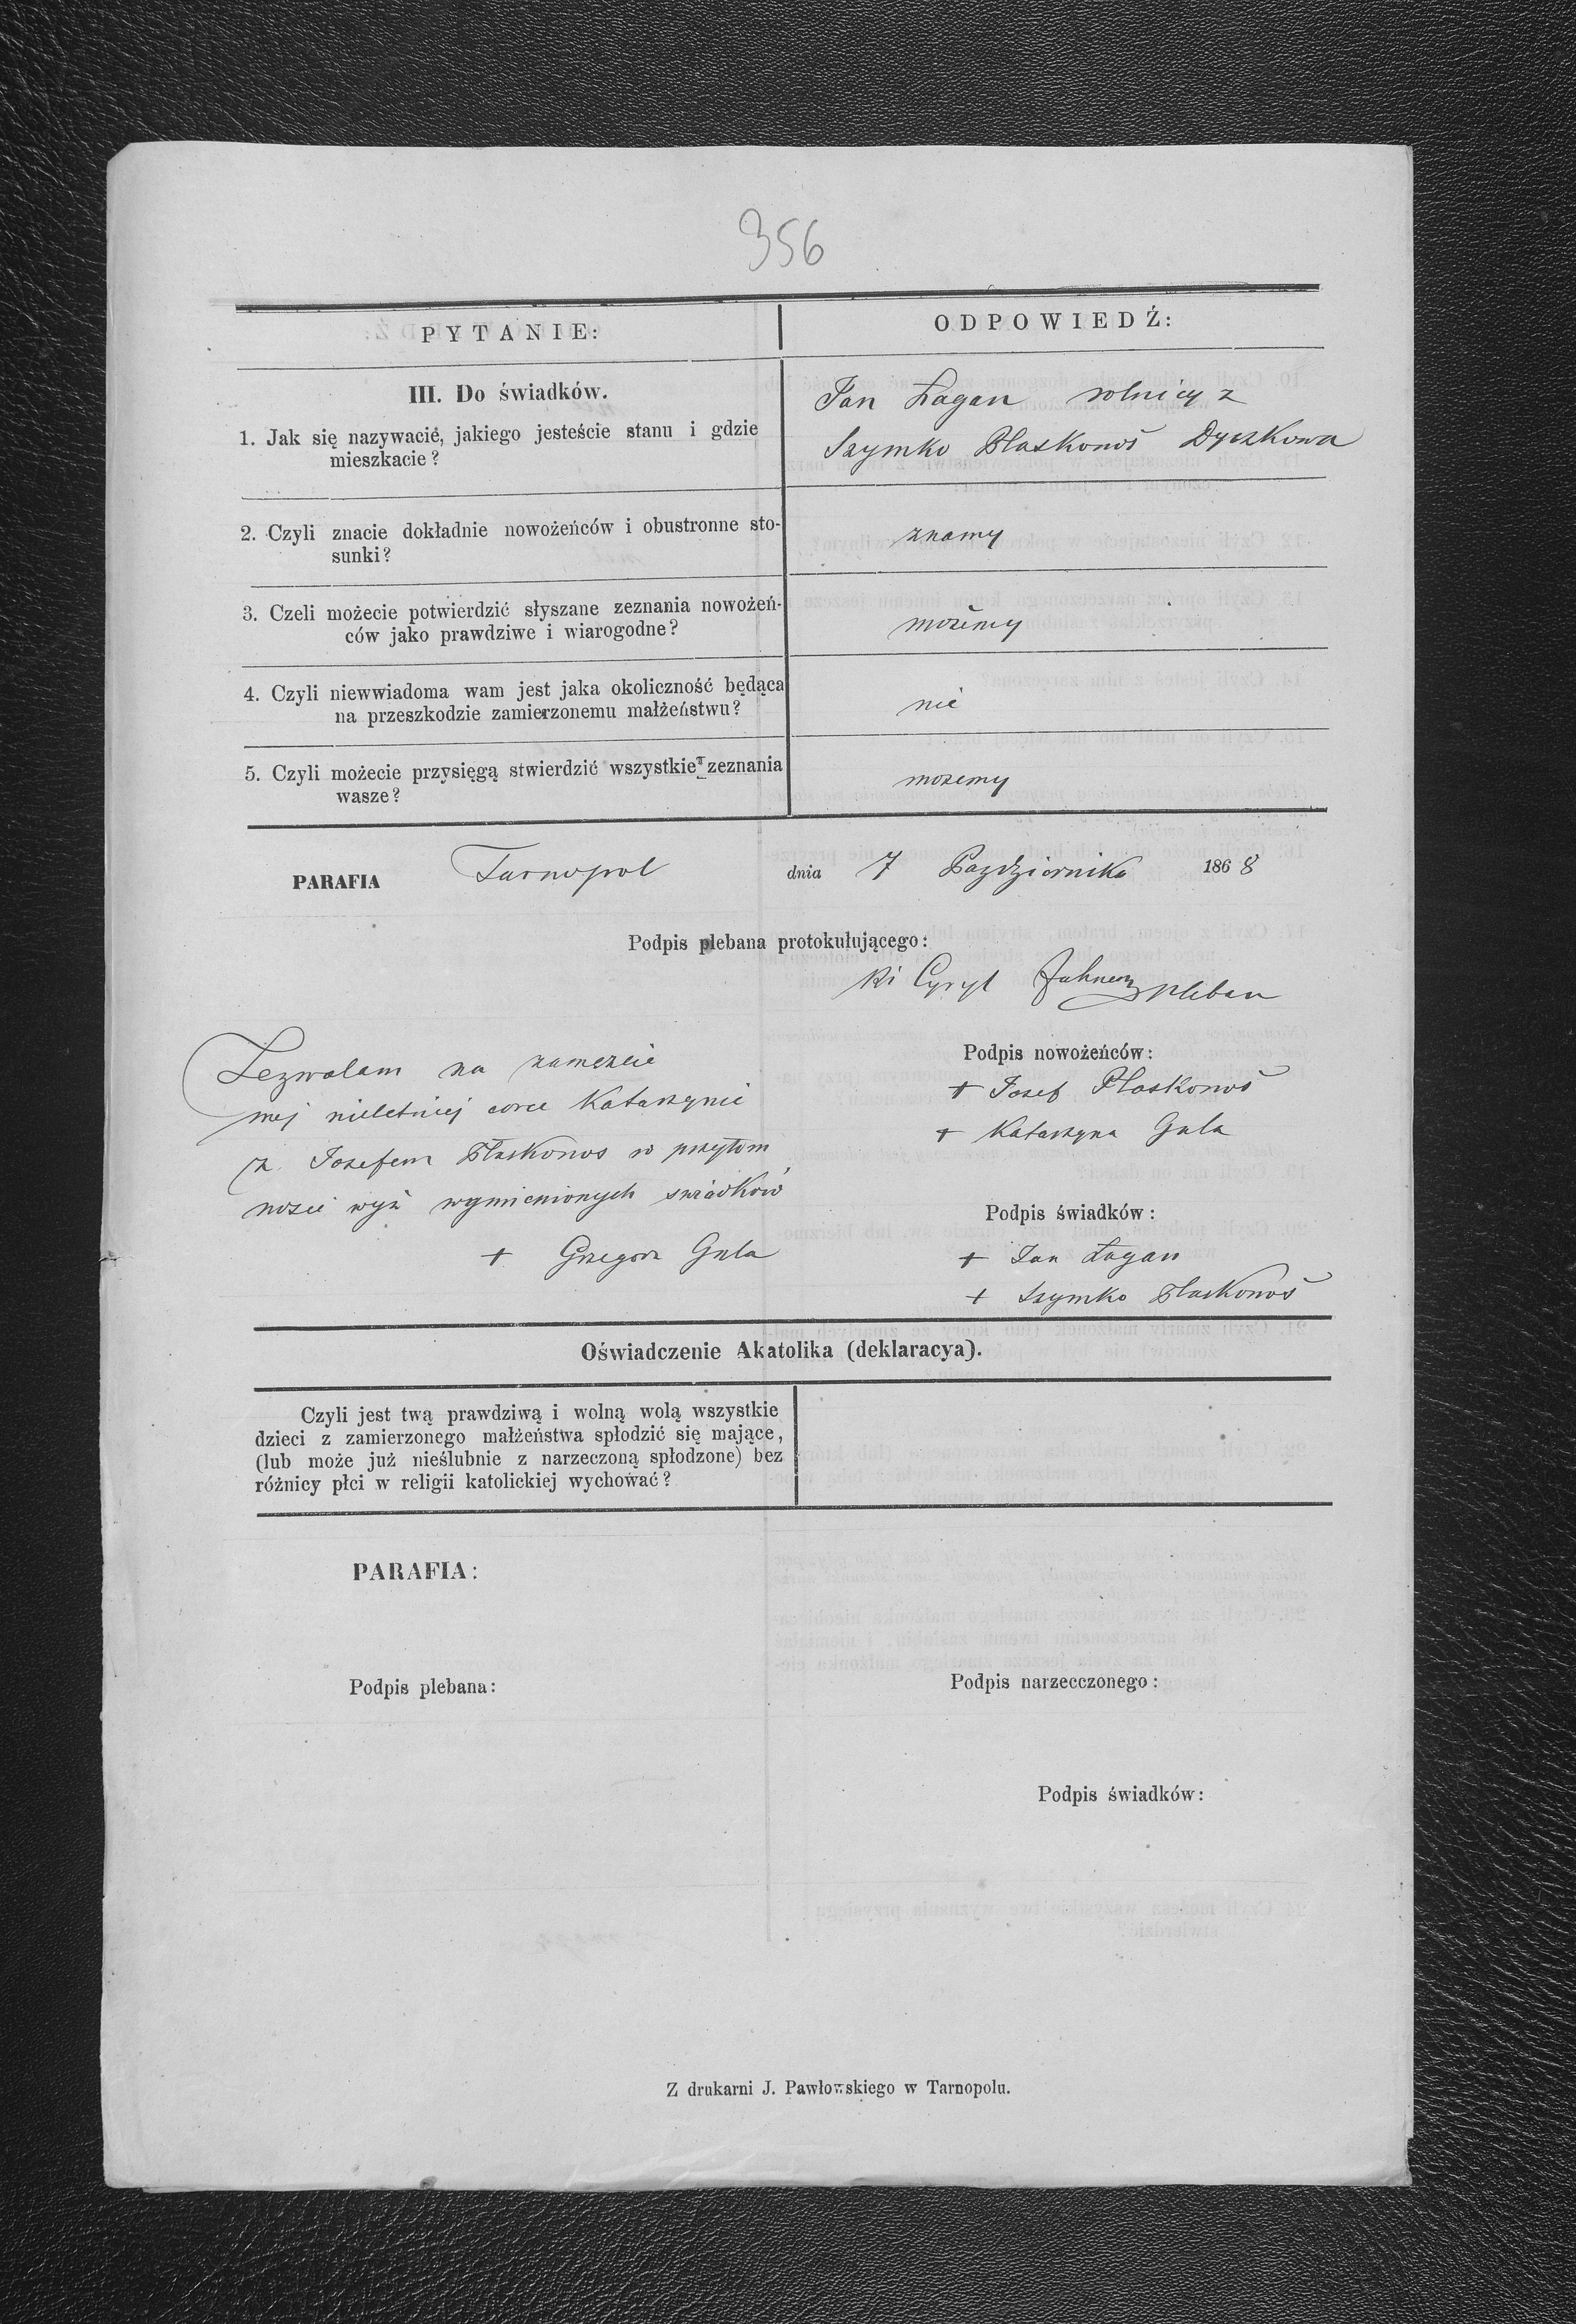 356
PYTANIE:
ODPOWIEDŹ:
III. Do świadków.
1. Jak się nazywacié, jakiego jesteście stanu i gdzie
mieszkacie?
Jan Łagan rolnicy z
Szymko Płaskonoś Dyczkowa
2. Czyli znacie dokładnie nowożeńców i obustronne sto-
sunki?
znamy
3. Czeli możecie potwierdzić słyszane zeznania nowożeń-
ców jako prawdziwe i wiarogodne?
możemy
4. Czyli niewwiadoma wam jest jaka okoliczność będąca
na przeszkodzie zamierzonemu małżeństwu?
nie
5. Czyli możecie przysięgą stwierdzić wszystkie zeznania
wasze?
mozemy
PARAFIA Tarnopol dnia 7 Pazdziernika 1868
Podpis plebana protokułującego:
Cyryl pleban
Zezwalam na zamezcie
mej nieletniej corce Katarzynie
z Jozefem Płaskonos w przytom
nosci wyż wymienionych swiadków
+ Grzegorz Gula
Podpis nowożeńców:
+ Jozef Płaskonoś
+ Katarzyna Gula
Podpis świadków:
+ Jan Łagan
+ Szymko Płaskonoś
Oświadczenie Akatolika (deklaracya).
Czyli jest twą prawdziwą i wolną wolą wszystkie
dzieci z zamierzonego małżeństwa spłodzić się mające,
(lub może już nieślubnie z narzeczoną spłodzone) bez
różnicy płci w religii katolickiej wychować?
PARAFIA:
Podpis plebana:
Podpis narzecczonego:
Podpis świadków:
Z drukarni J. Pawłowskiego w Tarnopolu.